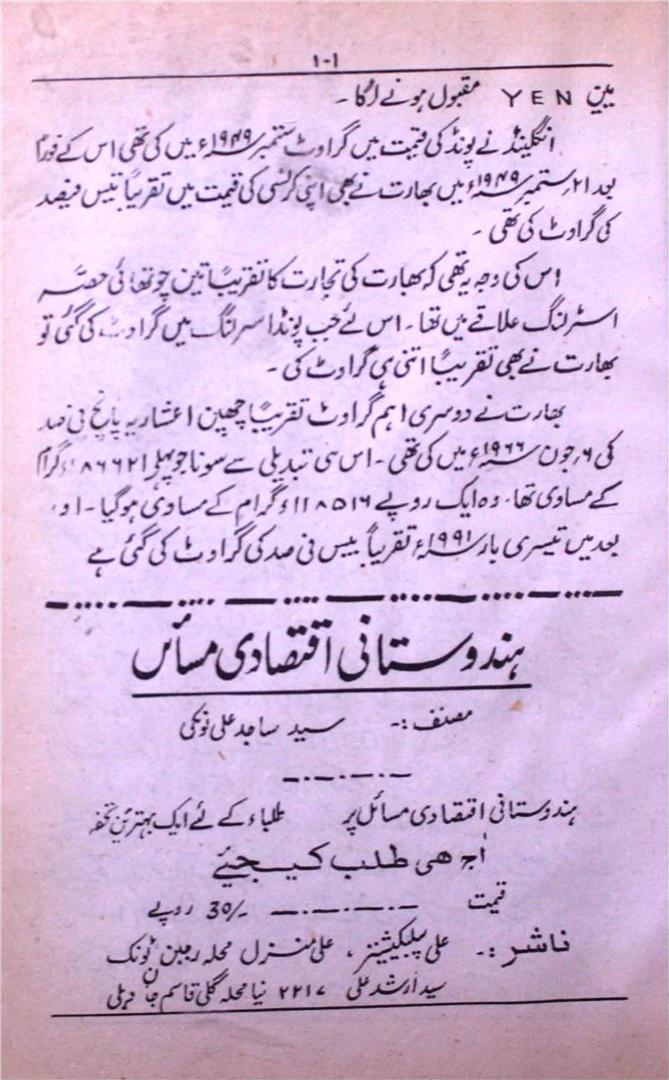 ۱۰۱
ین YEN مقبول ہونے لگا ۔
انگلینڈ نے پونڈ کی قیمت میں گراوٹ ستمبر ۱۹۴۹ء میں کی تھی اس کے فوراً
بعد ۲۱ ستمبر ۱۹۴۹ء میں بھارت نے بھی اپنی کرنسی کی قیمت میں تقریباً تیس فیصد
کی گراوٹ کی تھی ۔
اس کی وجہ یہ تھی کہ بھارت کی تجارت کا تقریباً تین چوتھائی حصّہ
اسٹرلنگ علاقے میں تھا ۔ اس لئے جب پونڈ اسٹرلنگ میں گراوٹ کی گئی تو
بھارت نے بھی تقریباً اتنی ہی گراوٹ کی ۔
بھارت نے دوسری اہم گراوٹ تقریباً چھپن اعشاریہ پانچ فی صد
کی ۶ جون ۱۹۶۶ء میں کی تھی ۔ اس سی تبدیلی سے سونا جو پہلے ۱۸۶۶۲۱ء گرام
کے مساوی تھا ۔ وہ ایک روپے ۱۱۸۵۱۶ء گرام کے مساوی ہوگیا ۔ اور
بعد میں تیسری بار ۱۹۹۱ء تقریباً بیس فی صد کی گراوٹ کی گئی ہے
ہندوستانی اقتصادی مسائل
مصنف :۔ سید ساجد علی ٹونکی
ہندوستانی اقتصادی مسائل پر طلباء کے لئے ایک بہترین تحفہ
آج ھی طلب کیجئے
قیمت 30/۔ روپے
ناشر :۔ علی پبلیکیشنز ، علی منزل محلہ رجبن ٹونک
سید ارشد علی ۲۲۱۷ نیا محلہ گلی قاسم جان دہلی